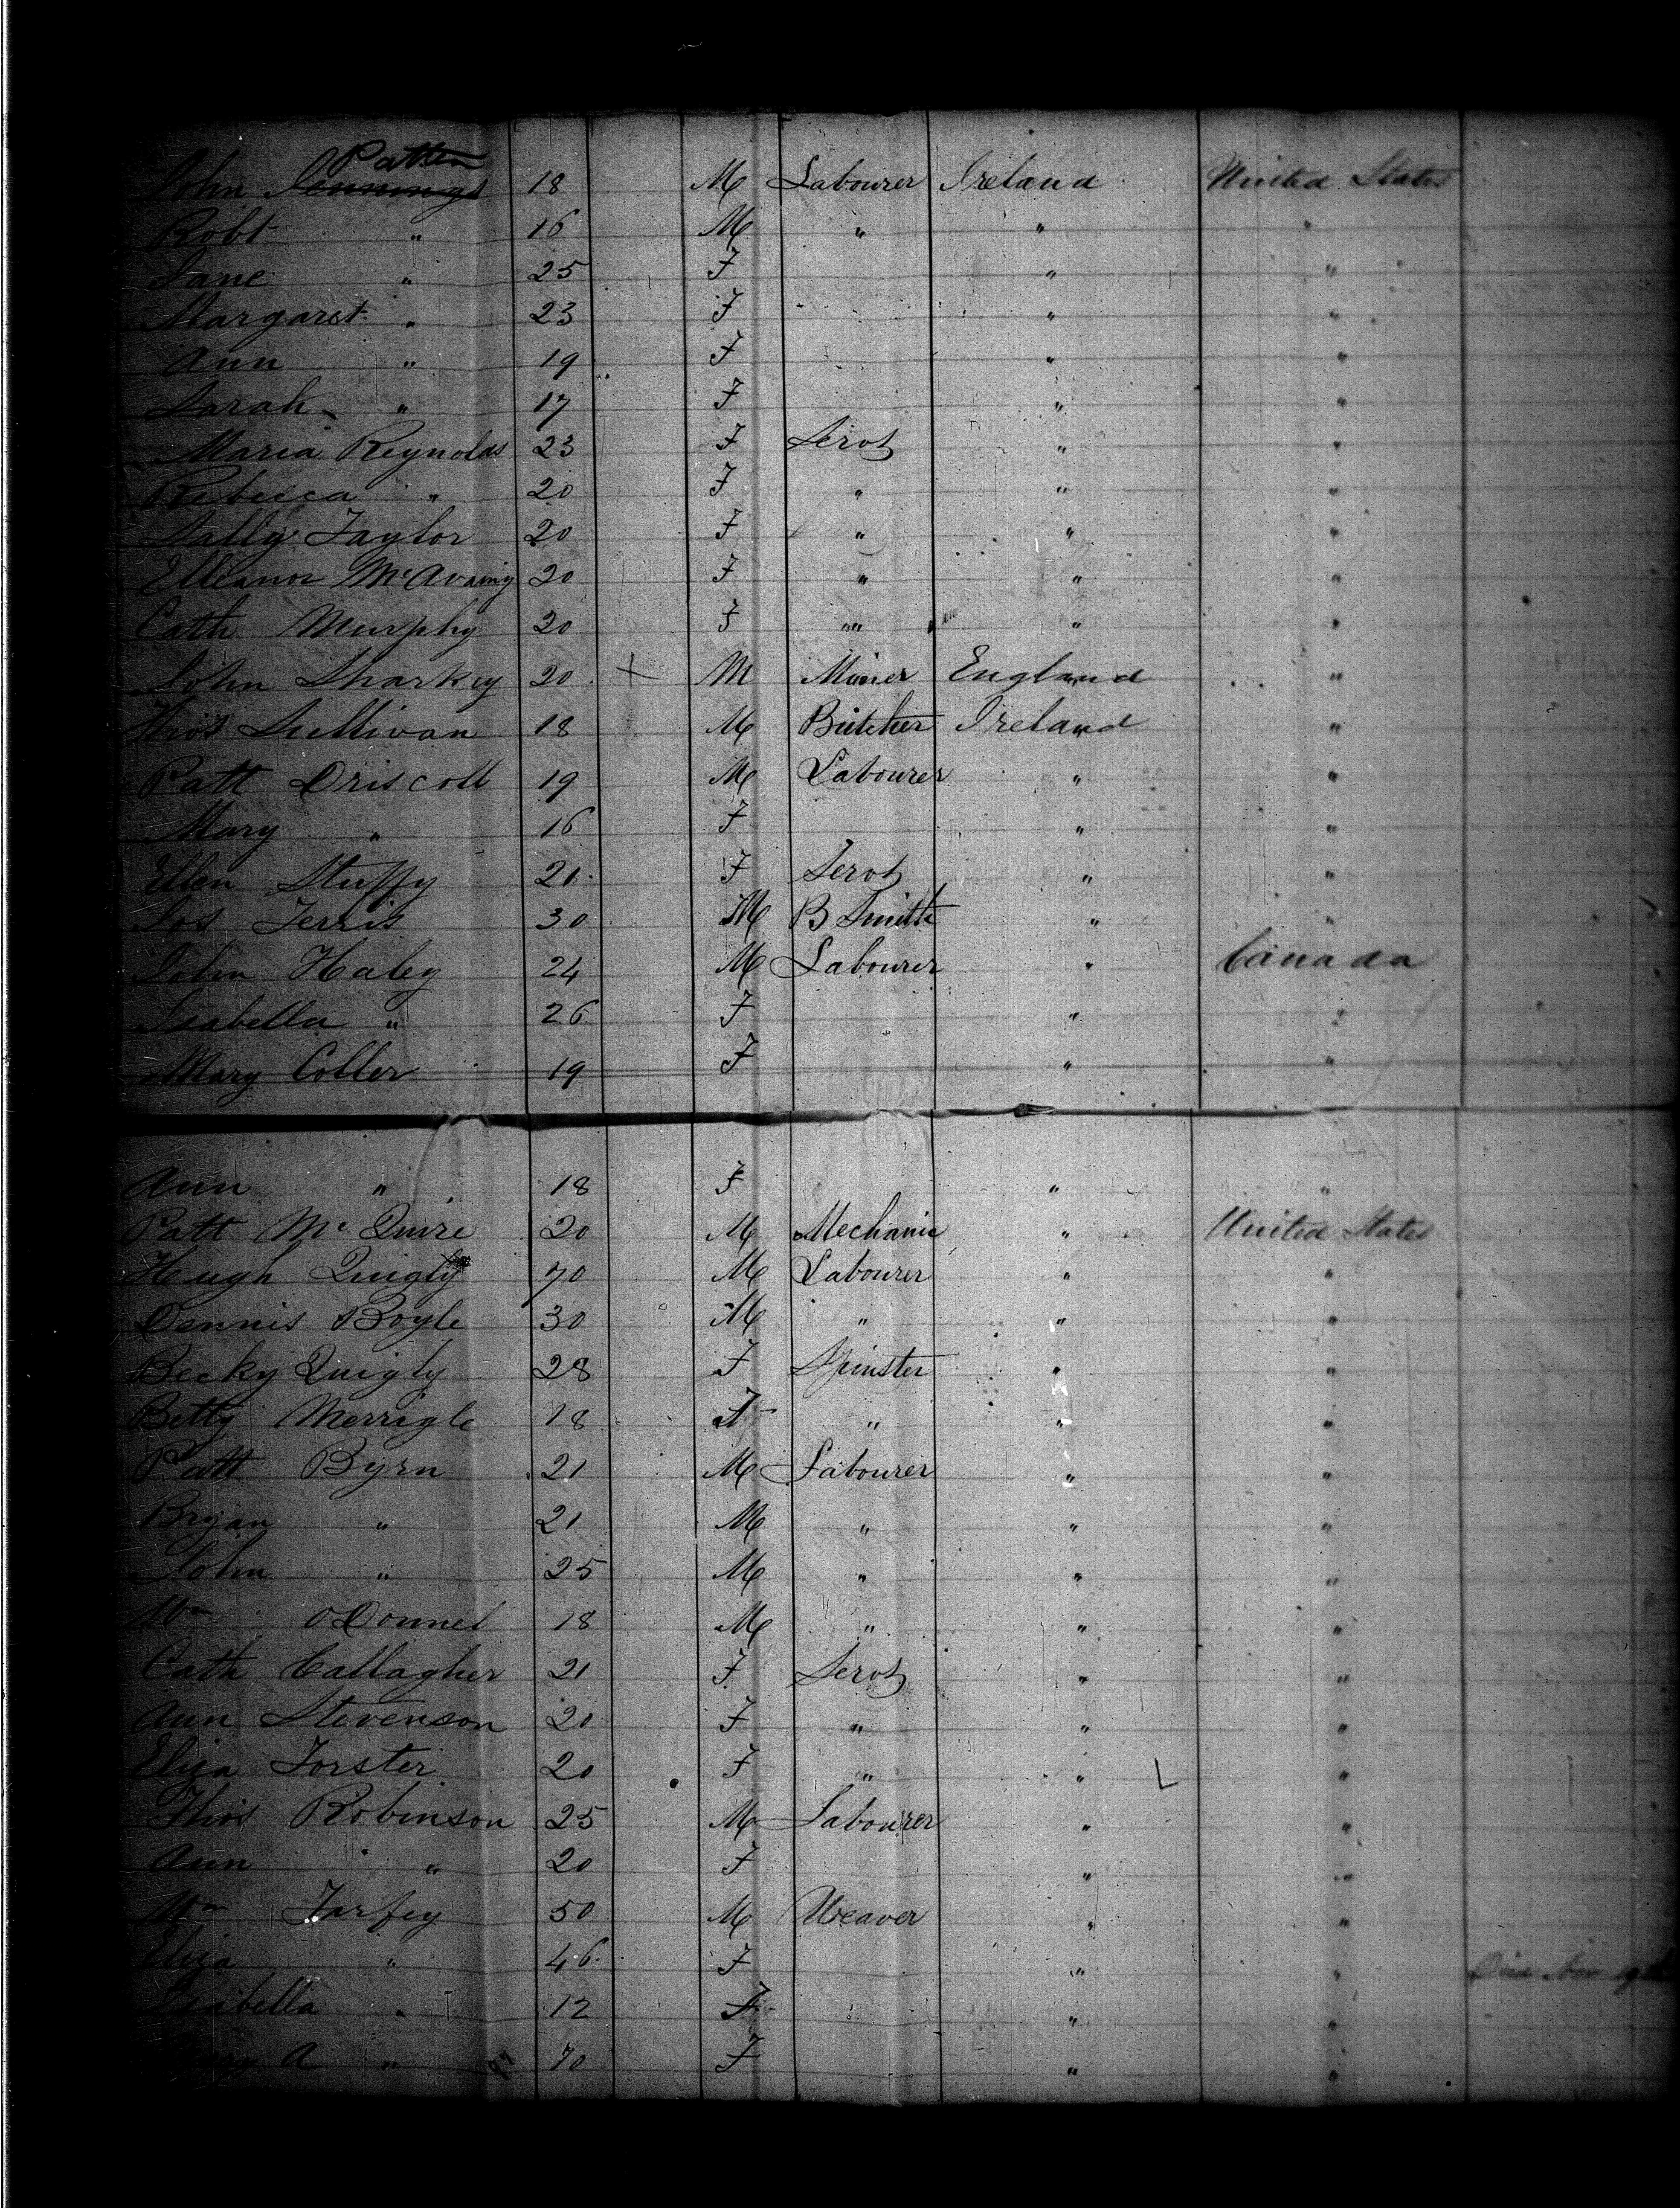 Patten
John Jennings 18 M Labourer Ireland United States
Robt " 16 M " " "
Jane " 25 F " "
Margaret " 23 F " "
Ann " 19 F " "
Sarah " 17 F " "
Maria Reynolds 23 F Servt " "
Rebecca " 20 F " " "
Sally Taylor 20 F " " "
Elleanor 20 F " " "
Cath Murphy 20 F " " "
John Sharkey 20 + M Miner England "
Thos Sullivan 18 M Butcher Ireland "
Patt Driscoll 19 M Labourer " "
Mary " 16 F " "
Ellen Stuffy 21 F Servt " "
Jos Ferris 30 M B Smith " "
John Haley 24 M Labourer " Canada
Isabella " 26 F " "
Mary Coller 19 F " "
Ann " 18 F " "
Patt McQuire 20 M Mechanic " United States
Hugh Quigly 70 M Labourer " "
Dennis Boyle 30 M " " "
Becky Quigly 28 F Spinster " "
Betty Merrigle 18 F " " "
Patt Byrn 21 M Labourer " "
Bryan " 21 M " " "
John " 25 M " " "
Wm ODonnel 18 M " " "
Cath Callagher 21 F Servt " "
Ann Stevenson 20 F " " "
Eliza Forster 20 F " " "
Thos Robinson 25 M Labourer " "
Ann " 20 F " "
Wm 50 M Weaver " "
Eliza " 46 F " " Died Nov
Isabella " 12 F " "
A " 70 F " "